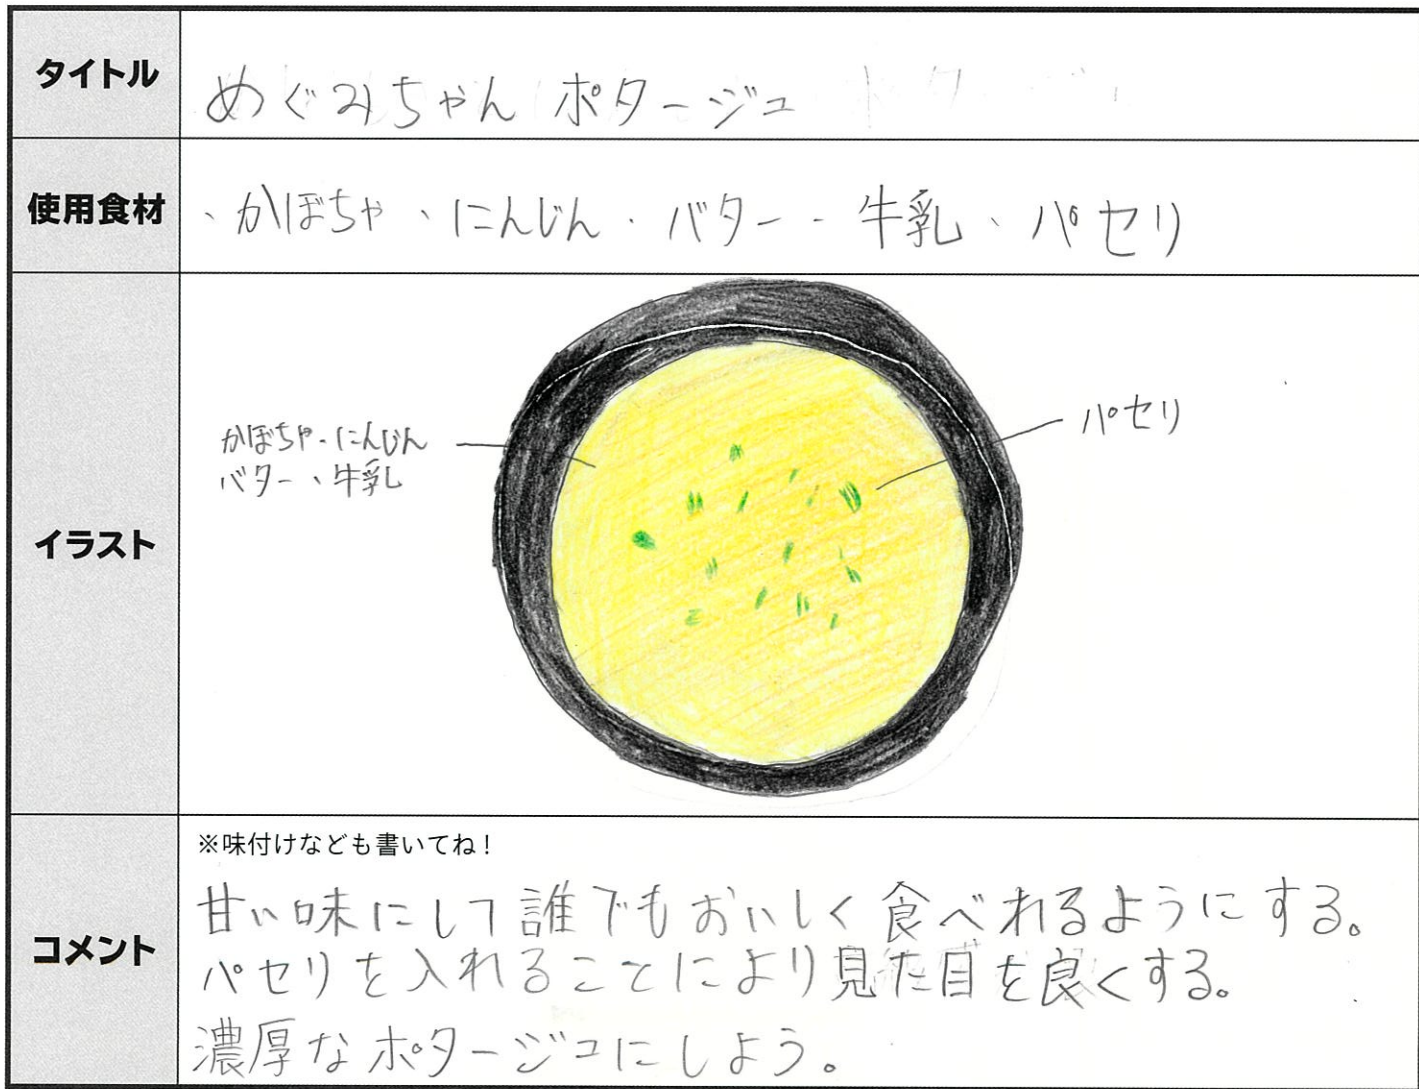 タイトル
めぐみちゃん ポタージュ
使用食材
、かぼちゃ、にんじん・バター・牛乳、パセリ
イラスト
かぼちゃ・にんじん
バター、牛乳
パセリ
コメント
※味付けなども書いてね！
甘い味にして誰でもおいしく食べれるようにする。
パセリを入れることにより見た目を良くする。
濃厚なポタージュにしよう。